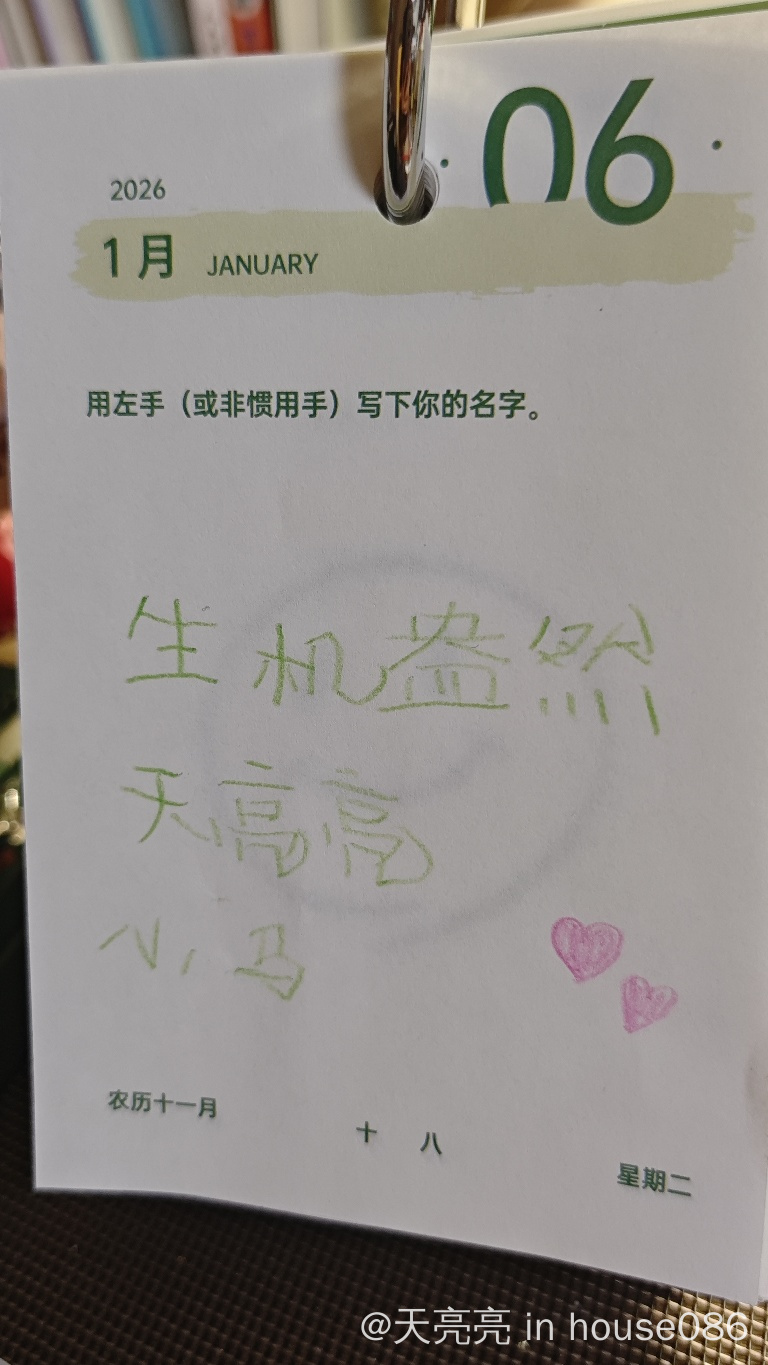 06
2026
1月 JANUARY
用左手（或非惯用手）写下你的名字。
生机盎然
天亮亮
小马
农历十一月
十八
星期二
@天亮亮 in house086